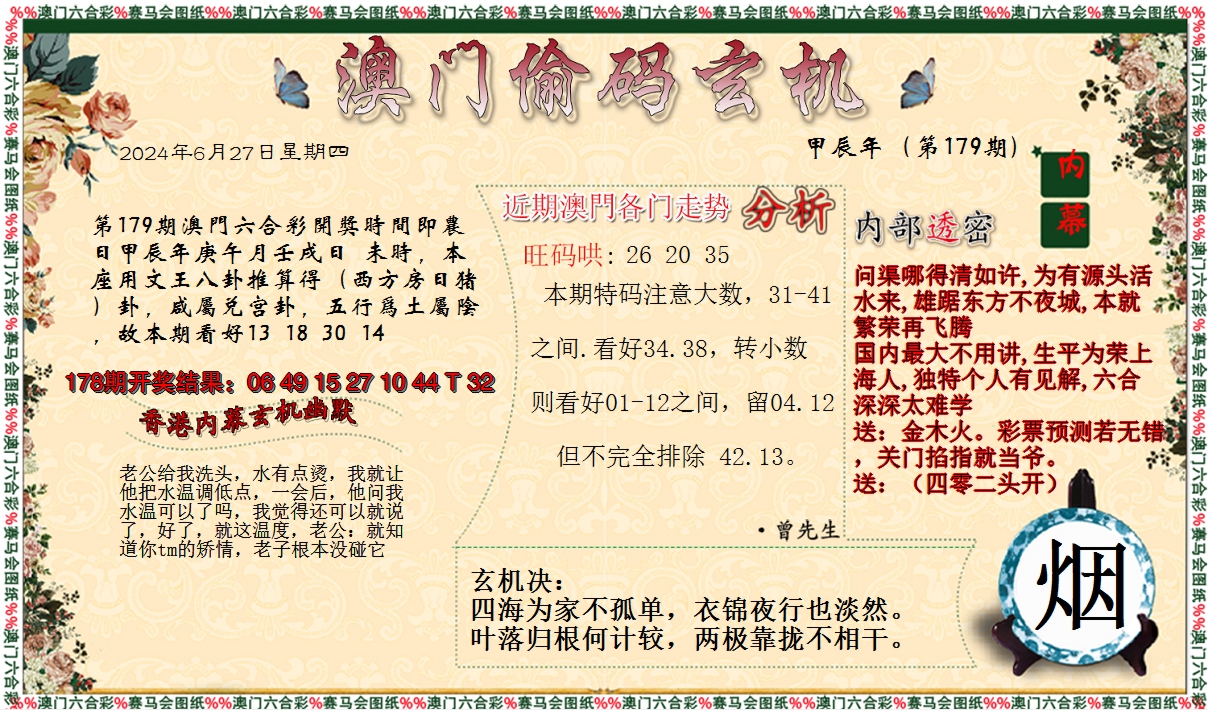 %%澳门六合彩%赛马会图纸%%澳门六合彩%赛马会图纸%%澳门六合彩%赛马会图纸%%澳门六合彩%赛马会图纸%%澳门六合彩%赛马会图纸%%澳门六合彩%赛马会图纸%%
澳门偷码玄机
2024年6月27日星期四
甲辰年（第179期）
内幕
第179期澳門六合彩開獎時間即農
日甲辰年庚午月壬戌日 未時，本
座用文王八卦推算得（西方房日猪
）卦，咸屬兑宫卦，五行爲土屬陰
，故本期看好13 18 30 14
178期开奖结果：06 49 15 27 10 44 T 32
香港内幕玄机幽默
老公给我洗头，水有点烫，我就让
他把水温调低点，一会后，他问我
水温可以了吗，我觉得还可以就说
了，好了，就这温度，老公：就知
道你tm的矫情，老子根本没碰它
近期澳門各门走势 分析
旺码哄: 26 20 35
本期特码注意大数，31-41
之间.看好34.38，转小数
则看好01-12之间，留04.12
但不完全排除 42.13。
·曾先生
内部透密
问渠哪得清如许,为有源头活
水来,雄踞东方不夜城,本就
繁荣再飞腾
国内最大不用讲,生平为荣上
海人,独特个人有见解,六合
深深太难学
送：金木火。彩票预测若无错
，关门掐指就当爷。
送：（四零二头开）
玄机决：
四海为家不孤单，衣锦夜行也淡然。
叶落归根何计较，两极靠拢不相干。
烟
%%澳门六合彩%赛马会图纸%%澳门六合彩%赛马会图纸%%澳门六合彩%赛马会图纸%%澳门六合彩%赛马会图纸%%澳门六合彩%赛马会图纸%%澳门六合彩%赛马会图纸%%